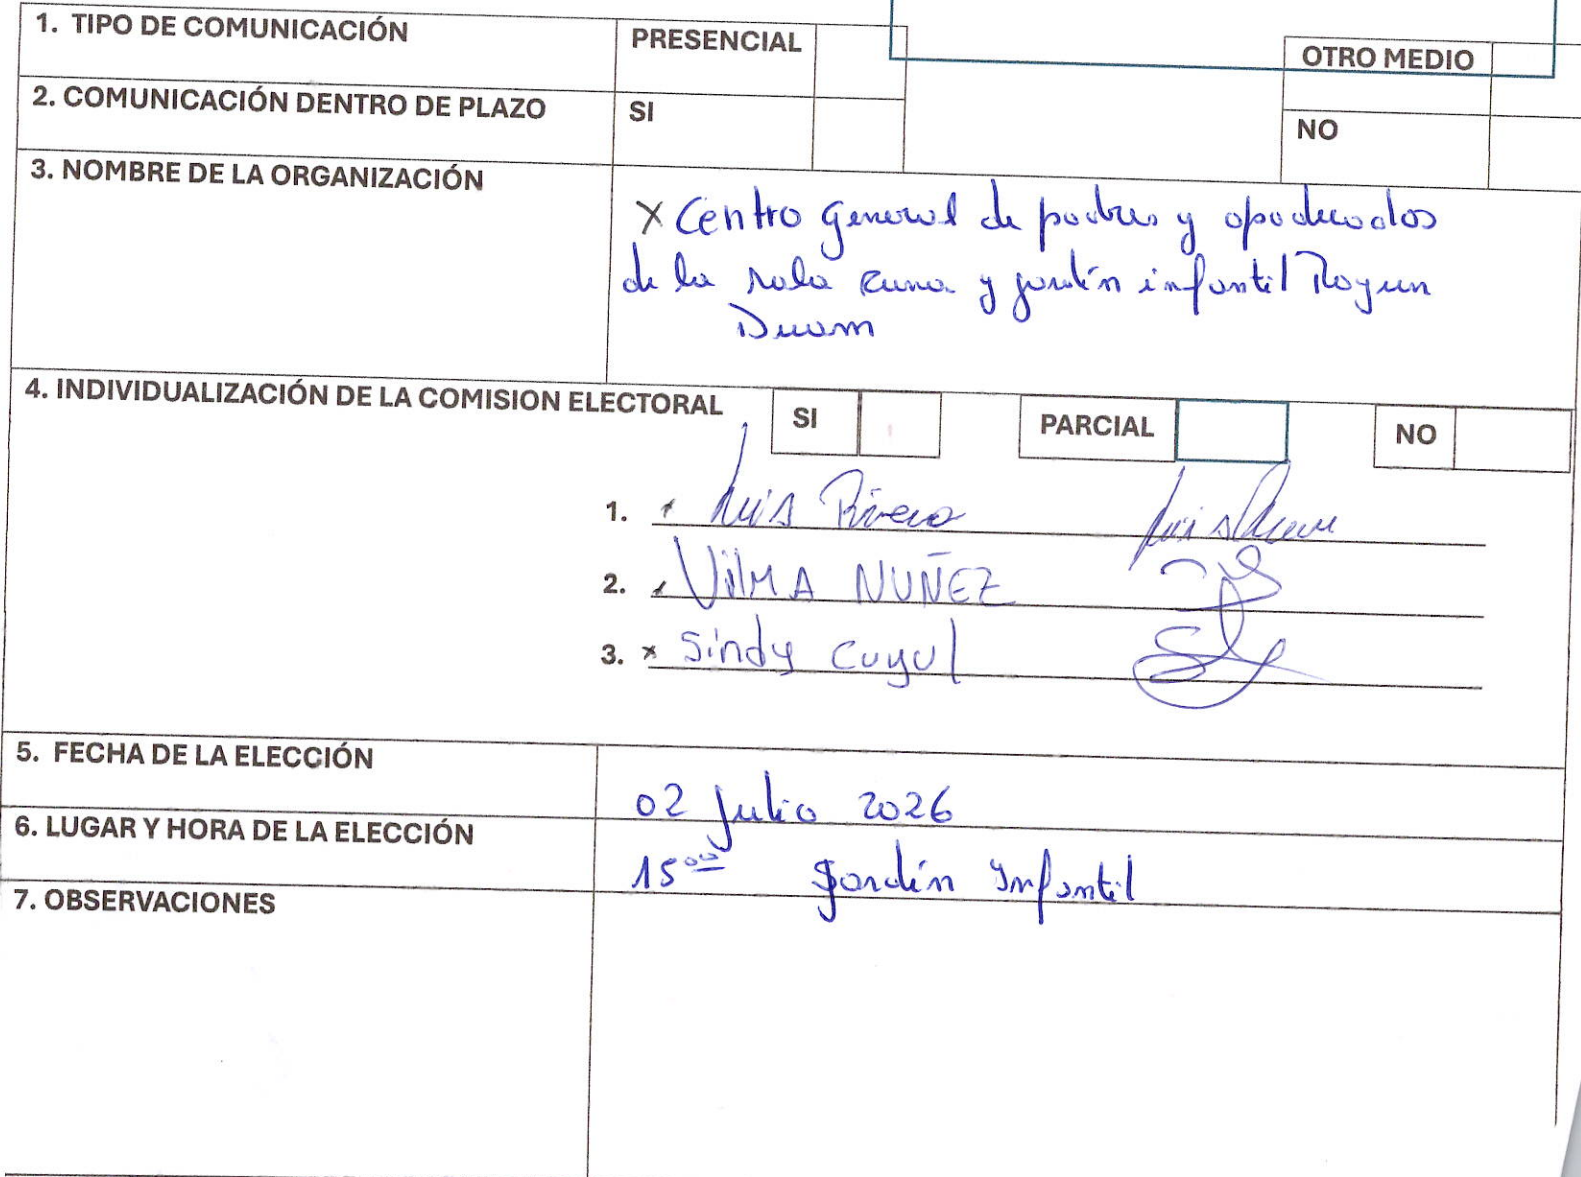 1. TIPO DE COMUNICACIÓN PRESENCIAL OTRO MEDIO
2. COMUNICACIÓN DENTRO DE PLAZO SI NO
3. NOMBRE DE LA ORGANIZACIÓN
X Centro General de padres y apoderados
de la sala cuna y jardín infantil Rayun
Duam
4. INDIVIDUALIZACIÓN DE LA COMISION ELECTORAL SI PARCIAL NO
1. x Luis Rivera
2. x VilMA NUÑEZ
3. x Sindy Cuyul
5. FECHA DE LA ELECCIÓN
02 Julio 2026
6. LUGAR Y HORA DE LA ELECCIÓN
15:00 Jardín Infantil
7. OBSERVACIONES